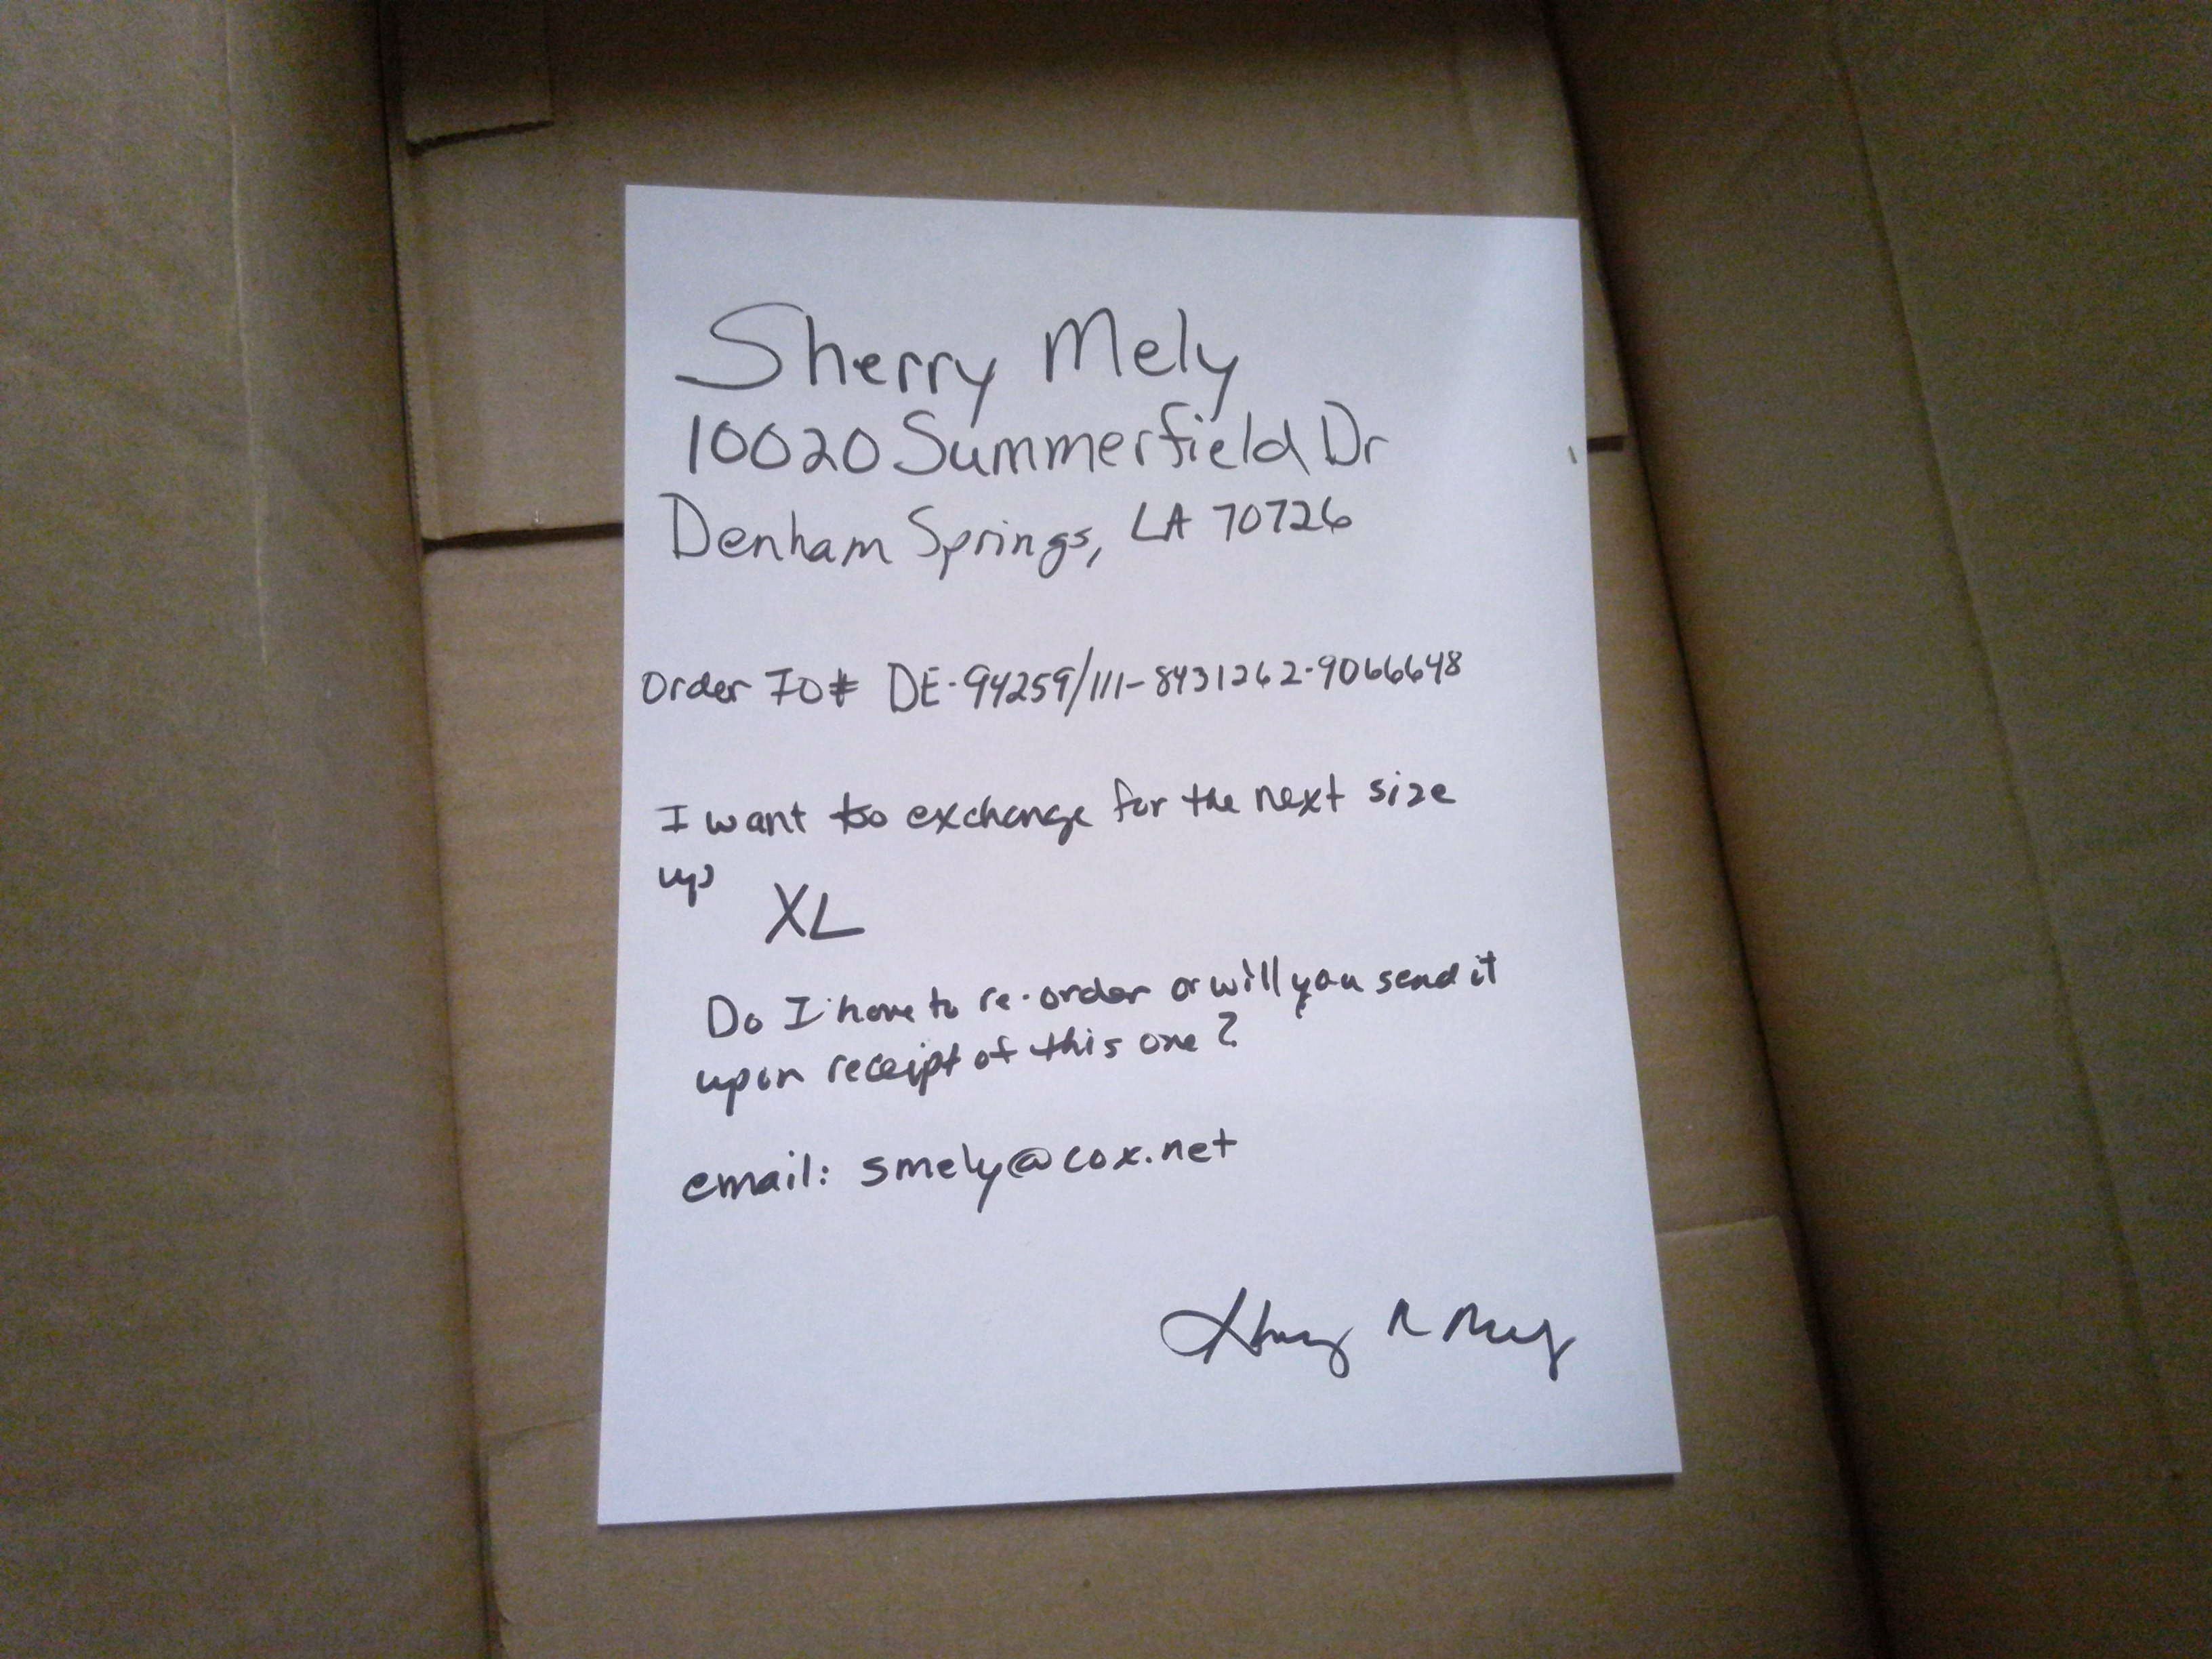 Sherry Mely
10020 Summerfield Dr
Denham Springs, LA 70726
Order ID# DE-94259/111-8431262-9066648
I want to exchange for the next size
up
XL
Do I have to re-order or will you send it
upon receipt of this one?
email: smely@cox.net